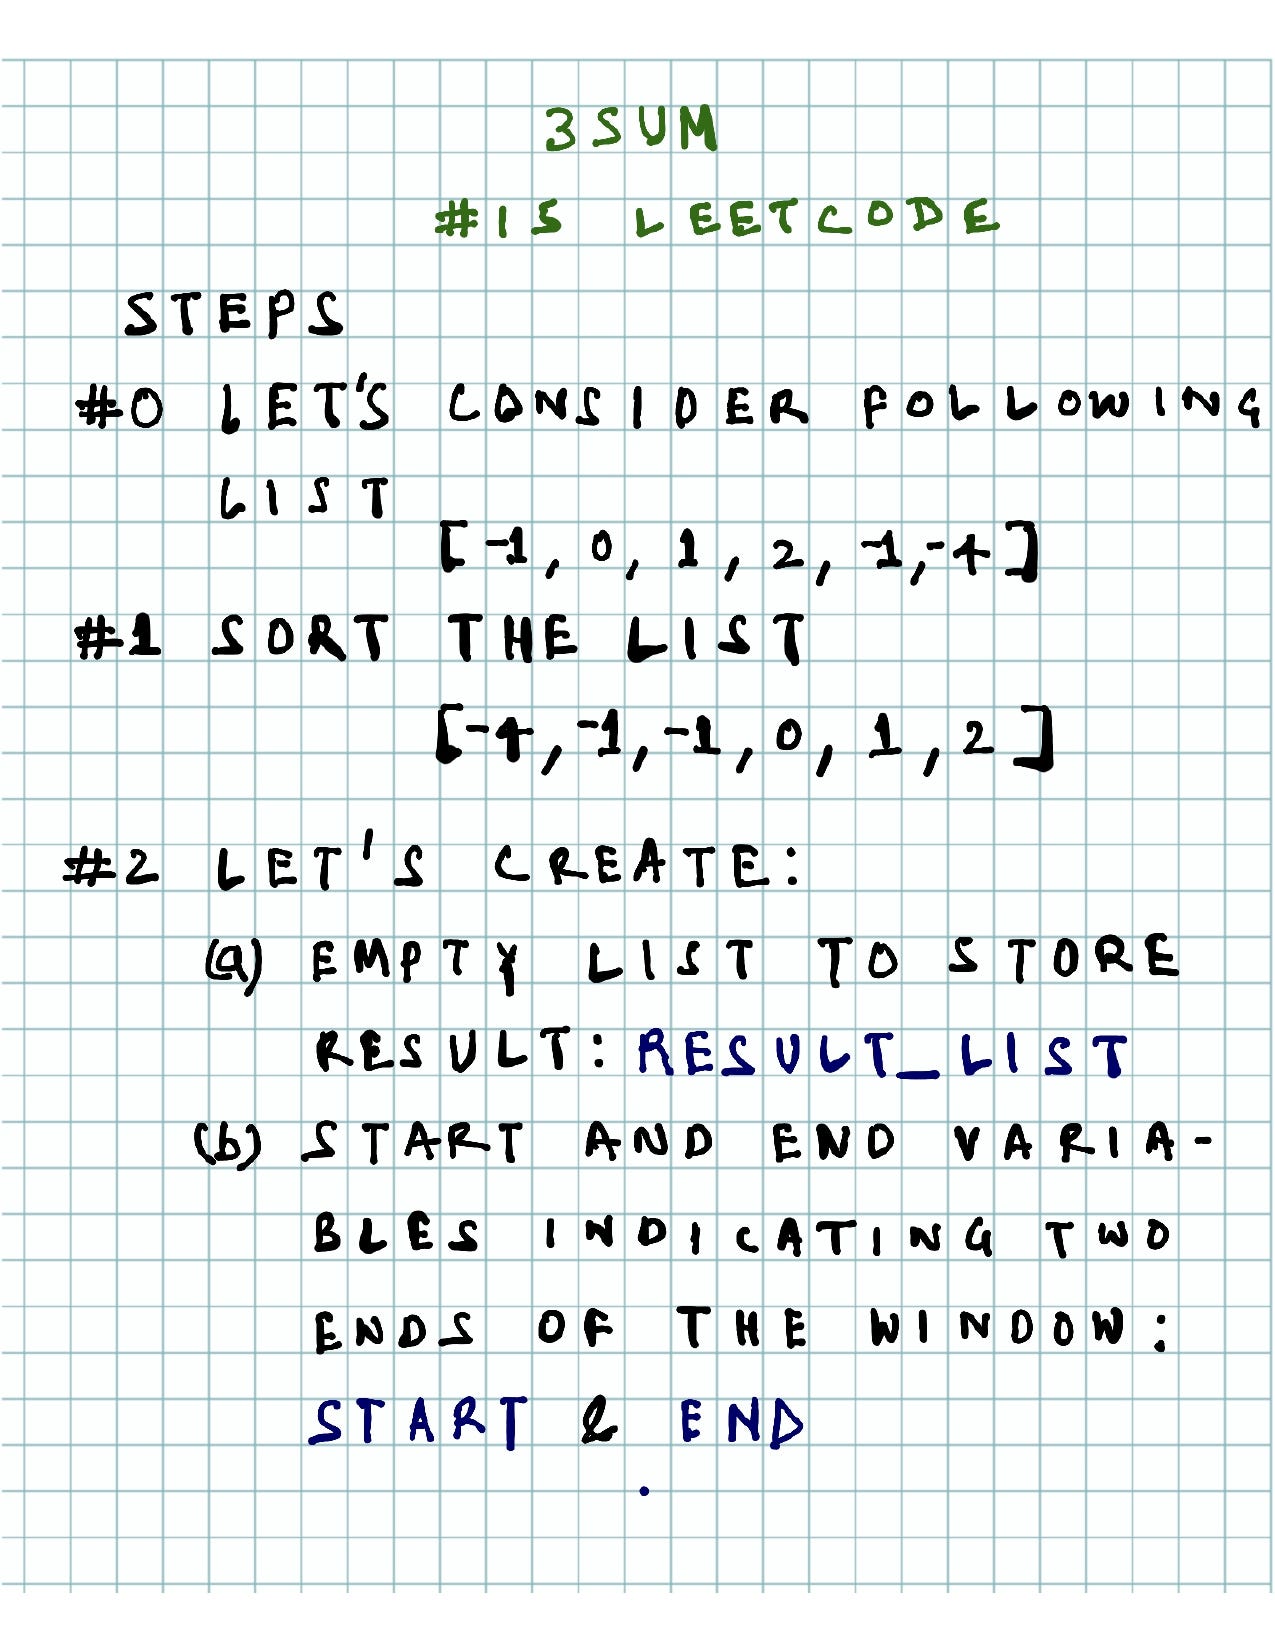 3SUM
#15 LEETCODE
STEPS
#0 LET'S CONSIDER FOLLOWING
LIST
[-1, 0, 1, 2, -1, -4]
#1 SORT THE LIST
[-4, -1, -1, 0, 1, 2]
#2 LET'S CREATE:
(a) EMPTY LIST TO STORE
RESULT: RESULT_LIST
(b) START AND END VARIA-
BLES INDICATING TWO
ENDS OF THE WINDOW:
START & END
.